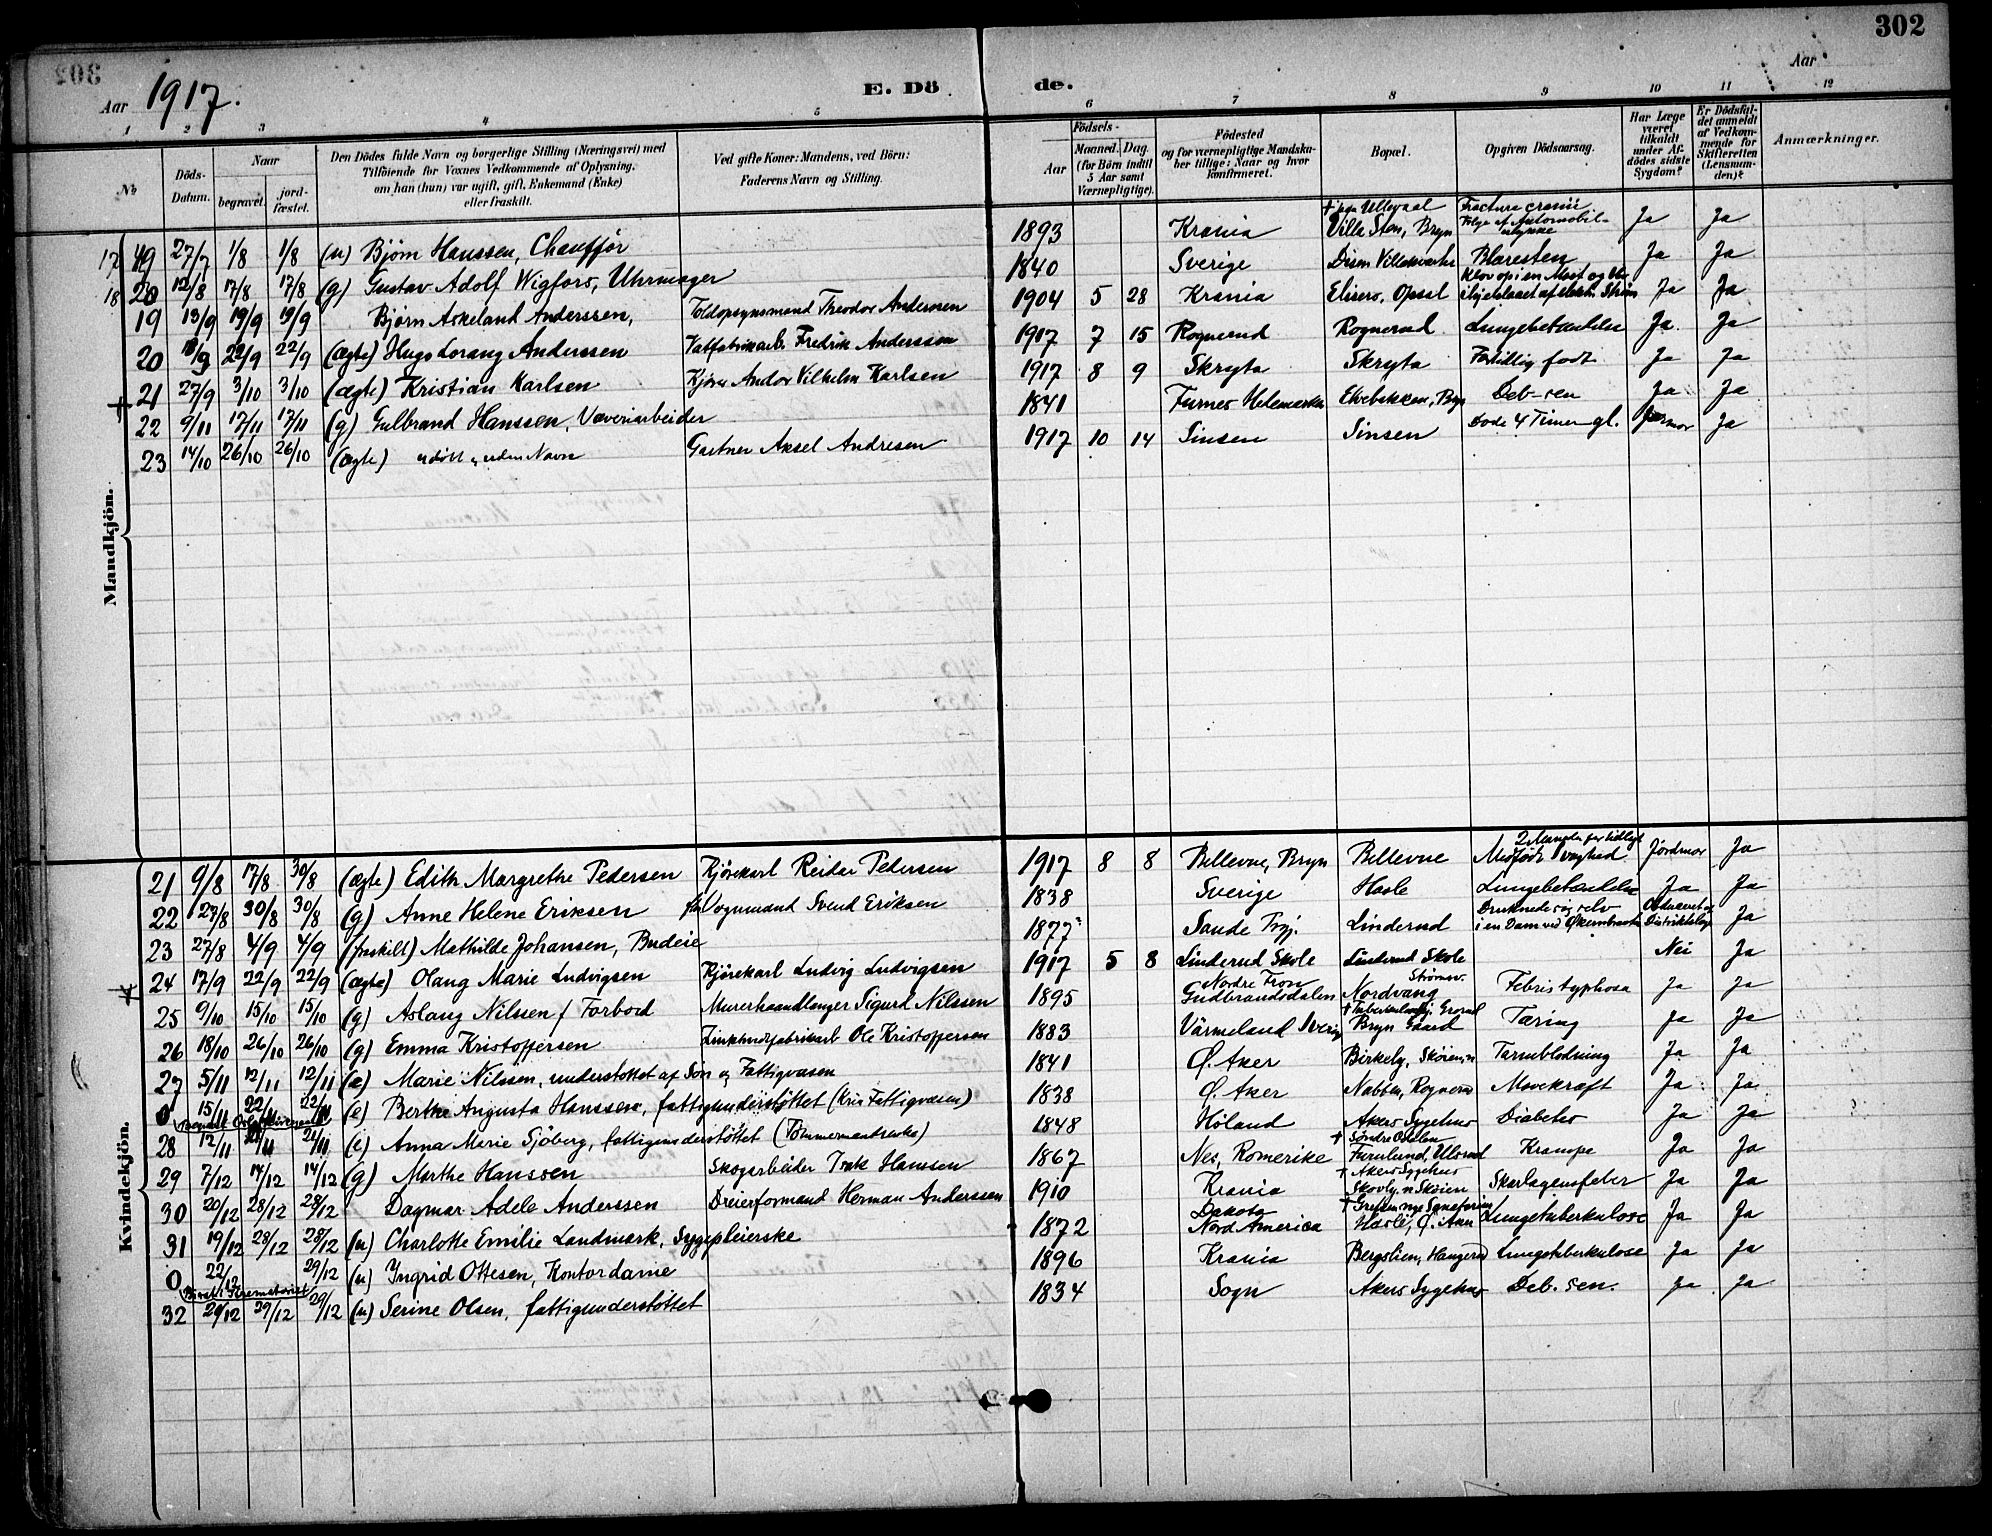 302
Aar 1917.
E. Dö de.
Aar
1 2 3 4 5 6 7 8 9 10 11 12
No
Döds-Datum.
Naar begravet. jord-fæstet.
Den Dödes fulde Navn og borgerlige Stilling (Næringsvei) med Tilföiende for Voxnes Vedkommende af Oplysning, om han (hun) var ugift, gift, Enkemand (Enke) eller fraskilt.
Ved gifte Koner: Mandens, ved Börn: Faderens Navn og Stilling.
Födsels- Aar Maaned. Dag. (for Börn indtil 5 Aar samt Værnepligtige).
Födested og for værnepligtige Mandskaber tillige: Naar og hvor konfirmeret.
Bopæl.
Opgiven Dödsaarsag.
Har Læge været tilkaldt under Afdödes sidste Sygdom?
Er Dödsfaldet anmeldt af Vedkommende for Skifteretten (Lensmanden)?
Anmærkninger.
Mandkjön.
17 19 27/7 1/8 1/8 (u) Bjørn Hanssen, Chauffør 1893 Krania Villa Sten, Bryn Fractura cranii Følge af Automobil- Ja Ja
18 20 12/8 17/8 17/8 (g) Gustav Adolf Wigfors, Uhrmager 1840 Sverige Blæresten Ja Ja
19 13/9 19/9 19/9 Bjørn Askeland Anderssen, Toldopsynsmand Theodor Anderssen 1904 5 28 Krania Opsal Klov op i en Mast og blev ihjelslaaet af elektr. Strøm Ja Ja
20 22/9 22/9 (ægte) Hugo Lorang Anderssen Vatfabrikarb. Fredrik Andersson 1917 7 15 Rognerud Rognerud Lungebetændelse Ja Ja
21 27/9 3/10 3/10 (ægte) Kristian Karlsen Kjører Andor Vilhelm Karlsen 1917 8 9 Skryta Skryta Fortidlig født Ja Ja
22 9/11 17/11 17/11 (g) Gulbrand Hanssen, Væveriarbeider 1841 Furnes Hedemarken Ekebakken, Bryn Deb-sen Ja Ja
23 14/10 26/10 26/10 (ægte) udöbt, uden Navn Gartner Aksel Andresen 1917 10 14 Sinsen Sinsen Døde 4 Timer gl. Jormor Ja
Kvindekjön.
21 9/8 17/8 30/8 (ægte) Edith Margrethe Pedersen Kjørekarl Reidar Pedersen 1917 8 8 Bellevue, Bryn Bellevue 2 Maaneder for tidligt Medfödt Svaghed Jordmor Ja
22 27/8 30/8 30/8 (g) Anne Helene Eriksen Vognmand Svend Eriksen 1838 Sverige Hasle Lungebetændelse Ja Ja
23 27/8 4/9 4/9 (fraskilt) Mathilde Johansen, Budeie 1877 Sande Linderud Druknede sig selv i en Dam ved Ja
24 17/9 22/9 22/9 (ægte) Olaug Marie Ludvigsen Kjørekarl Ludvig Ludvigsen 1917 5 8 Linderud Skole Linderud Skole Nei Ja
25 9/10 15/10 15/10 (g) Aslaug Nilssen f Forbord Murerhaandlanger Sigurd Nilssen 1895 Nordre Fron Gudbrandsdalen Nordvang Febris typhosa Ja Ja
26 18/10 26/10 26/10 (g) Emma Kristoffersen Ole Kristoffersen 1883 Värmeland Sverige Bryn Gaard Tæring Ja Ja
27 5/11 12/11 12/11 (e) Marie Nilssen, understøttet af Søn og Fattigvæsen 1841 Ø. Aker Birkely, Skøien, n Tarmblødning Ja Ja
0 15/11 22/11 22/11 (e) Berthe Augusta Hanssen, fattigunderstøttet (Kris Fattigvæsen) 1838 Ø. Aker Nabben, Rognerud Mavekræft Ja Ja
28 12/11 24/11 24/11 (e) Anna Marie Sjöberg, fattigunderstøttet (Tømmermandsenke) 1848 Høland Akers Sygehus Diabetes Ja Ja
29 7/12 14/12 14/12 (g) Marthe Hanssen Skogarbeider Isak Hanssen 1867 Nes, Romerike Furulund, Ulsrud Krampe Ja Ja
30 20/12 28/12 28/12 Dagmar Adele Anderssen Dreierformand Herman Anderssen 1910 Krania † Akers Sygehus Skovly, n Skøien Skarlagensfeber Ja Ja
31 19/12 28/12 28/12 (u) Charlotte Emilie Landmark, Sygepleierske 1872 Dakota Nord America † Grefsen nye Sanatorium Hasle, Ø. Aker Lungetuberkulose Ja Ja
0 22/12 29/12 (u) Ingrid Ottesen, Kontordame 1896 Krania Bergslien, Haugerud Lungetuberkulose Ja Ja
32 29/12 29/12 (u) Serine Olsen, fattigunderstøttet 1834 Sogn Akers Sygehus Deb. sen. Ja Ja